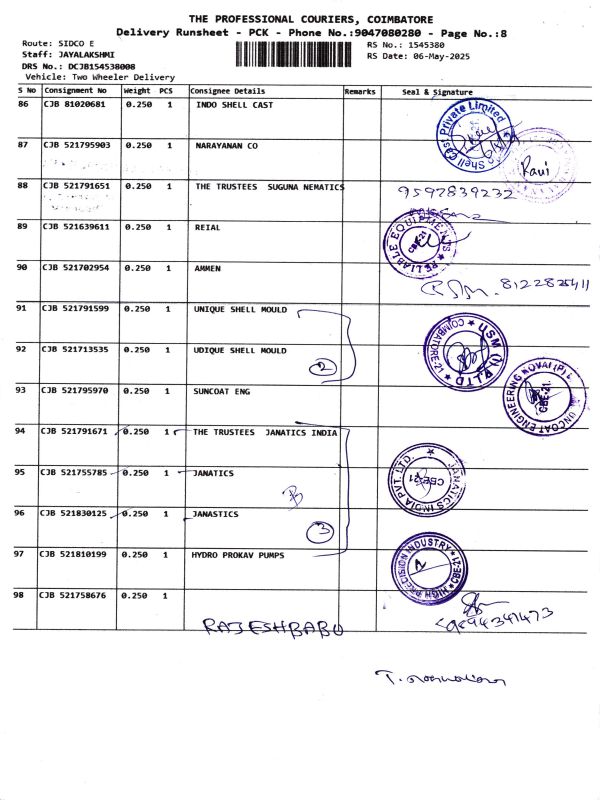 THE PROFESSIONAL COURIERS, COIMBATORE
Delivery Runsheet - PCK - Phone No.:9047080280 - Page No.:8
Route: SIDCO E
RS No.: 1545380
Staff: JAYALAKSHMI
RS Date: 06-May-2025
DRS No.: DCJB154538008
Vehicle: Two Wheeler Delivery
S No Consignment No Weight PCS Consignee Details Remarks Seal & Signature
86 CJB 81020681 0.250 1 INDO SHELL CAST
87 CJB 521795903 0.250 1 NARAYANAN CO
Ravi
88 CJB 521791651 0.250 1 THE TRUSTEES SUGUNA NEMATICS
9597839232
89 CJB 521639611 0.250 1 REIAL
RELIABLE EQUIPMENTS CBE-21
90 CJB 521702954 0.250 1 AMMEN
8122825411
91 CJB 521791599 0.250 1 UNIQUE SHELL MOULD
USM (I) P LTD COIMBATORE-21
92 CJB 521713535 0.250 1 UDIQUE SHELL MOULD
2
93 CJB 521795970 0.250 1 SUNCOAT ENG
CBE-21
94 CJB 521791671 0.250 1 THE TRUSTEES JANATICS INDIA
95 CJB 521755785 0.250 1 JANATICS
JANATICS INDIA PVT. LTD. CBE-21
96 CJB 521830125 0.250 1 JANASTICS
3
97 CJB 521810199 0.250 1 HYDRO PROKAV PUMPS
HIGH PRECISION INDUSTRY CBE-21
98 CJB 521758676 0.250 1
RAJESHBABU
9894341473